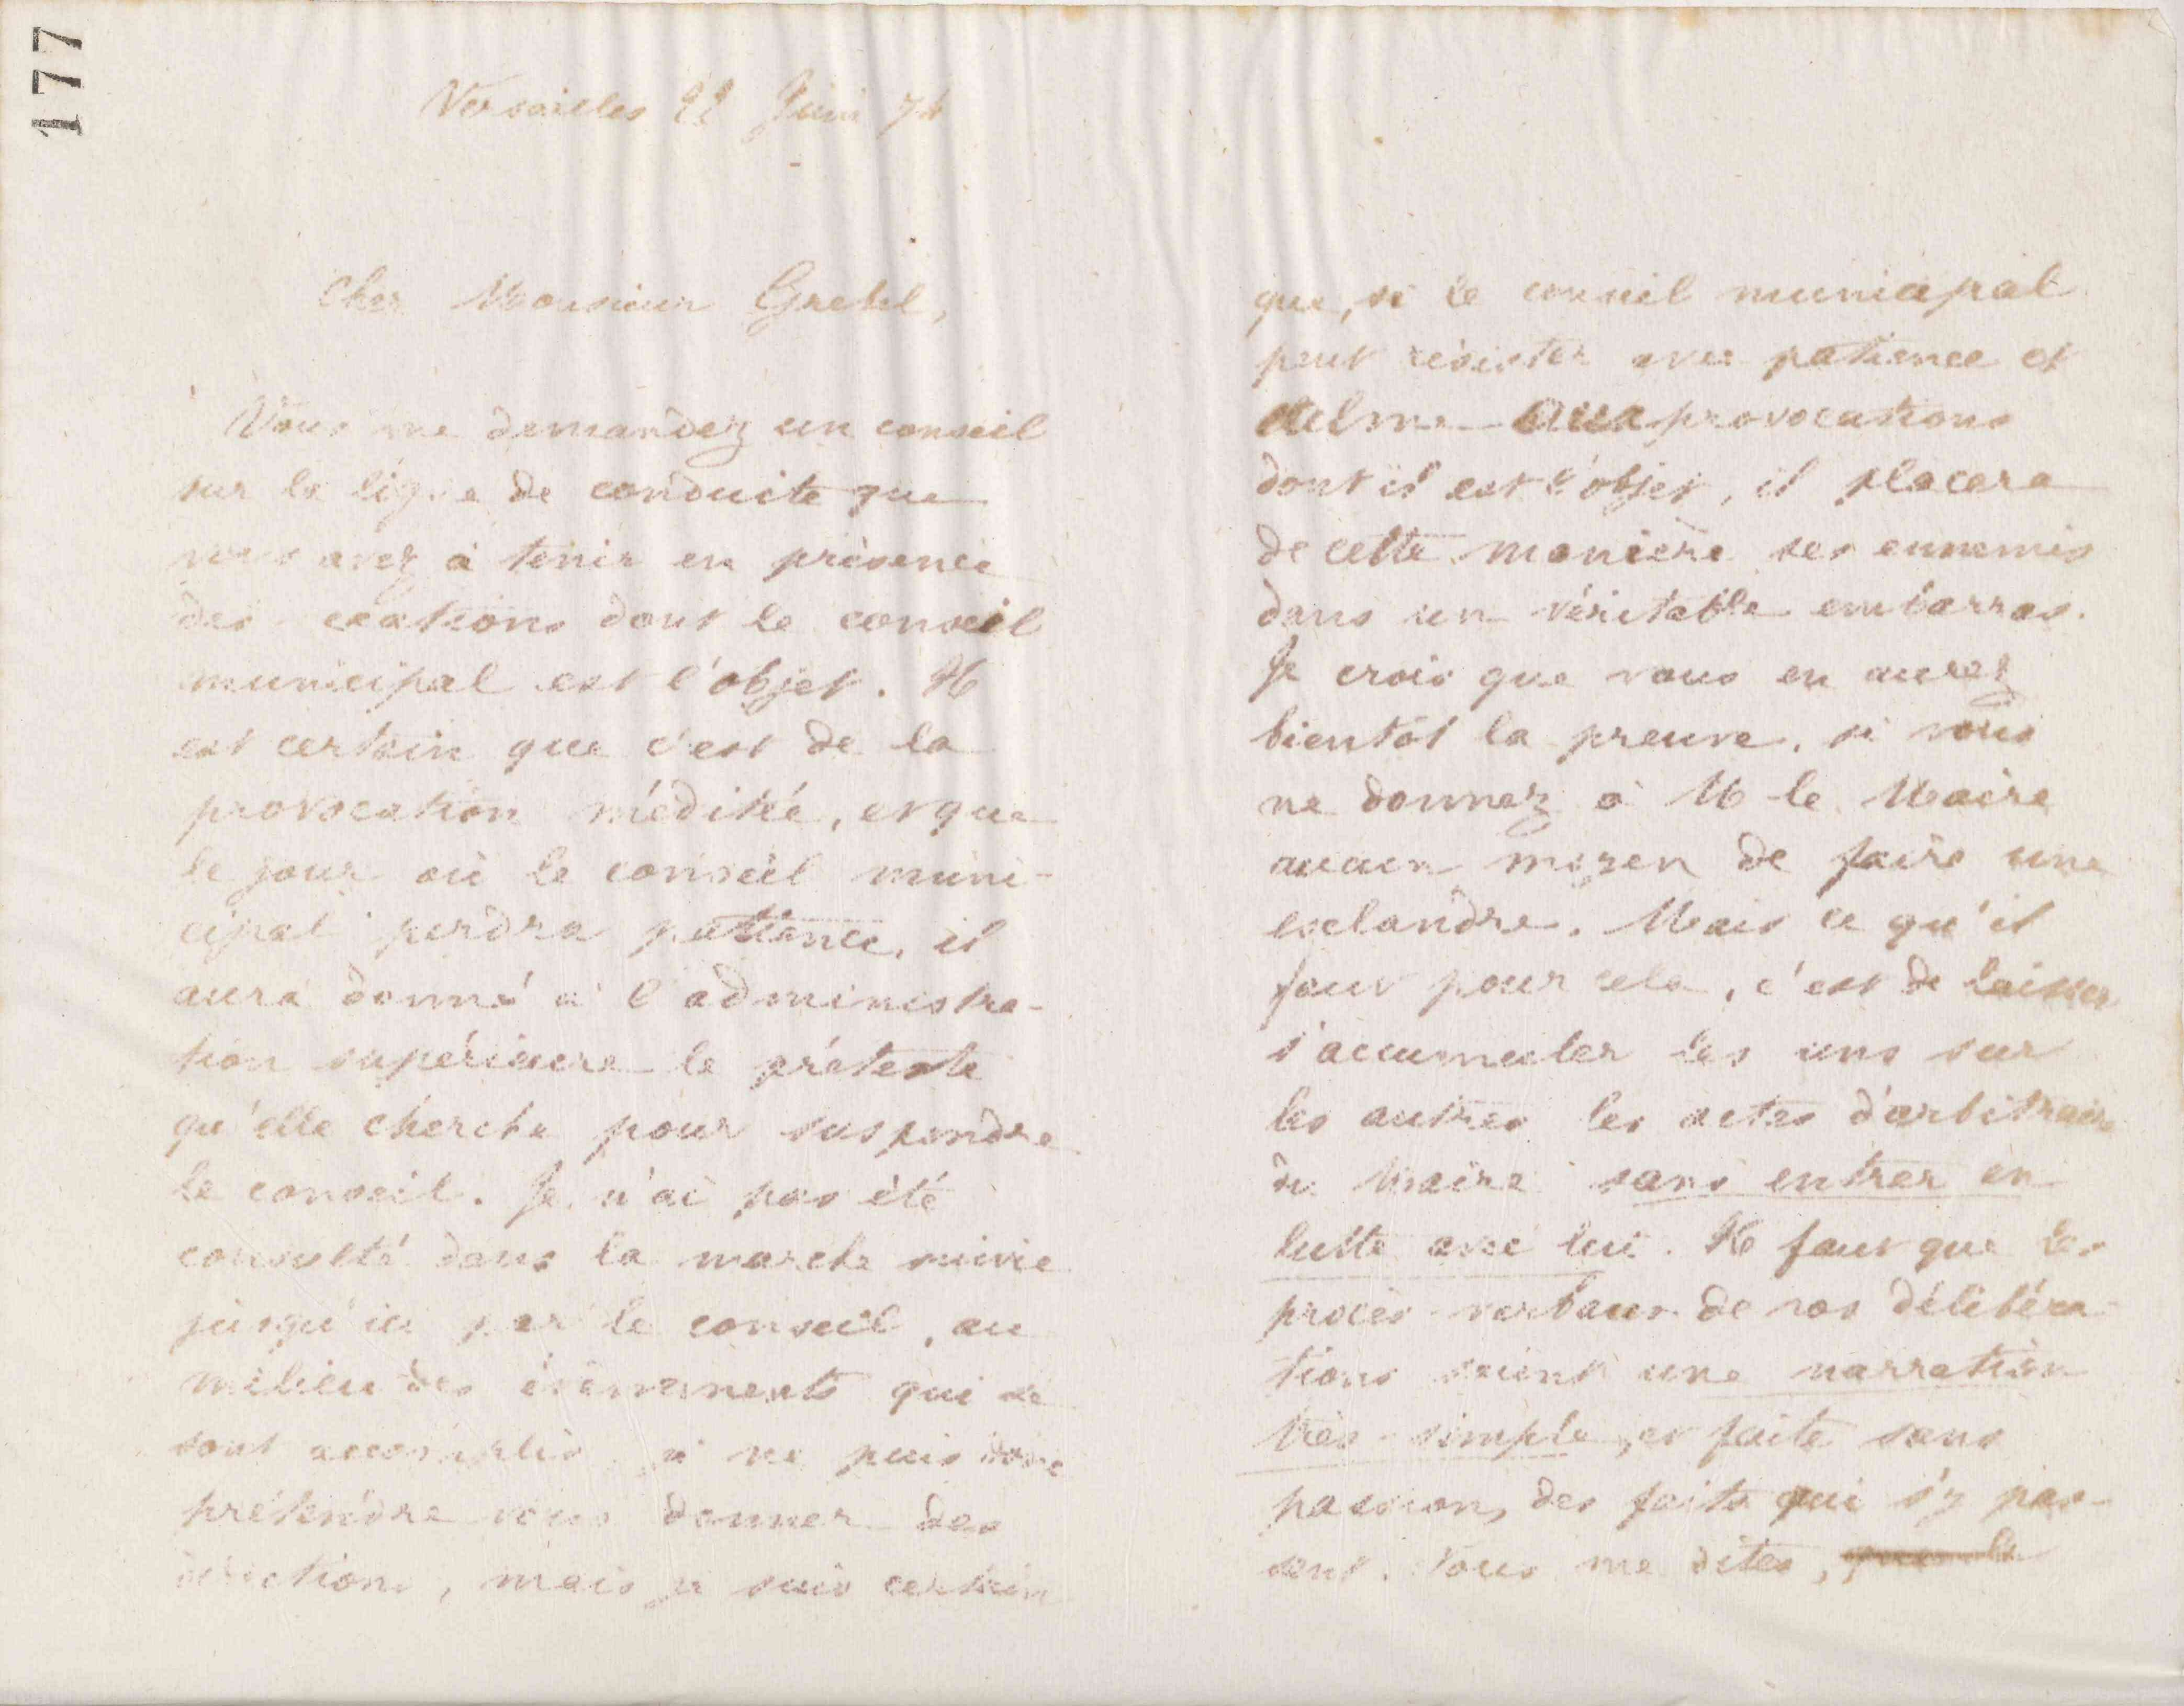 177
Versailles 22 Juin 74
Cher Monsieur Grebel,
Vous me demandez un conseil
sur la ligne de conduite que
vous avez à tenir en présence
des vexations dont le conseil
municipal est l'objet. Il
est certain que c'est de la
provocation méditée, et que
le jour où le conseil muni-
cipal perdra patience, il
aura donné à l'administra-
tion supérieure le prétexte
qu'elle cherche pour suspendre
le conseil. Je n'ai pas été
consulté dans la marche suivie
jusqu'ici par le conseil, au
milieu des évènements qui se
sont accomplis je ne puis donc
prétendre vous donner des
directions, mais je suis certain
que, si le conseil municipal
peut résister avec patience et
calme aux provocations
dont il est l'objet, il placera
de cette manière ses ennemis
dans un véritable embarras.
Je crois que vous en aurez
bientôt la preuve, si vous
ne donnez à M le Maire
aucun moyen de faire une
esclandre. Mais ce qu'il
faut pour cela, c'est de laisser
s'accumuler les uns sur
les autres les actes d'arbitraire
du Maire sans entrer en
lutte avec lui. Il faut que les
procès-verbaux de vos délibéra-
tions soient une narration
très-simple, et faite sans
passion, des faits qui s'y pas-
sent. Vous me dites,